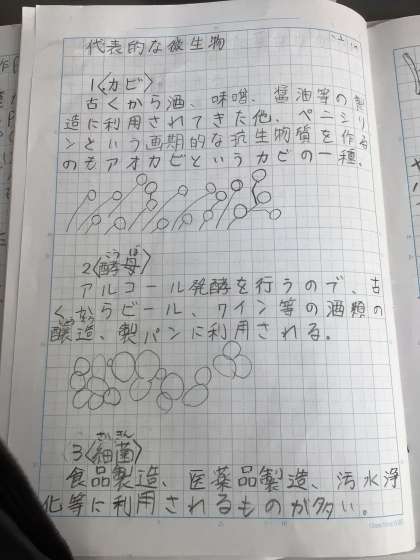 代表的な微生物
1〈カビ〉
古くから酒、味噌、醤油等の製
造に利用されてきた他、ペニシリ
ンという画期的な抗生物質を作る
のもアオカビというカビの一種。
2〈酵母〉
アルコール発酵を行うので、古
くからビール、ワイン等の酒類の
醸造、製パンに利用される。
(3〈細菌〉
食品製造、医薬品製造、汚水浄
化等に利用されるものが多い。